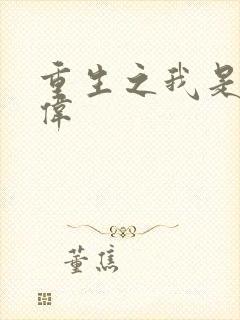 重生之我是
偉
董焦